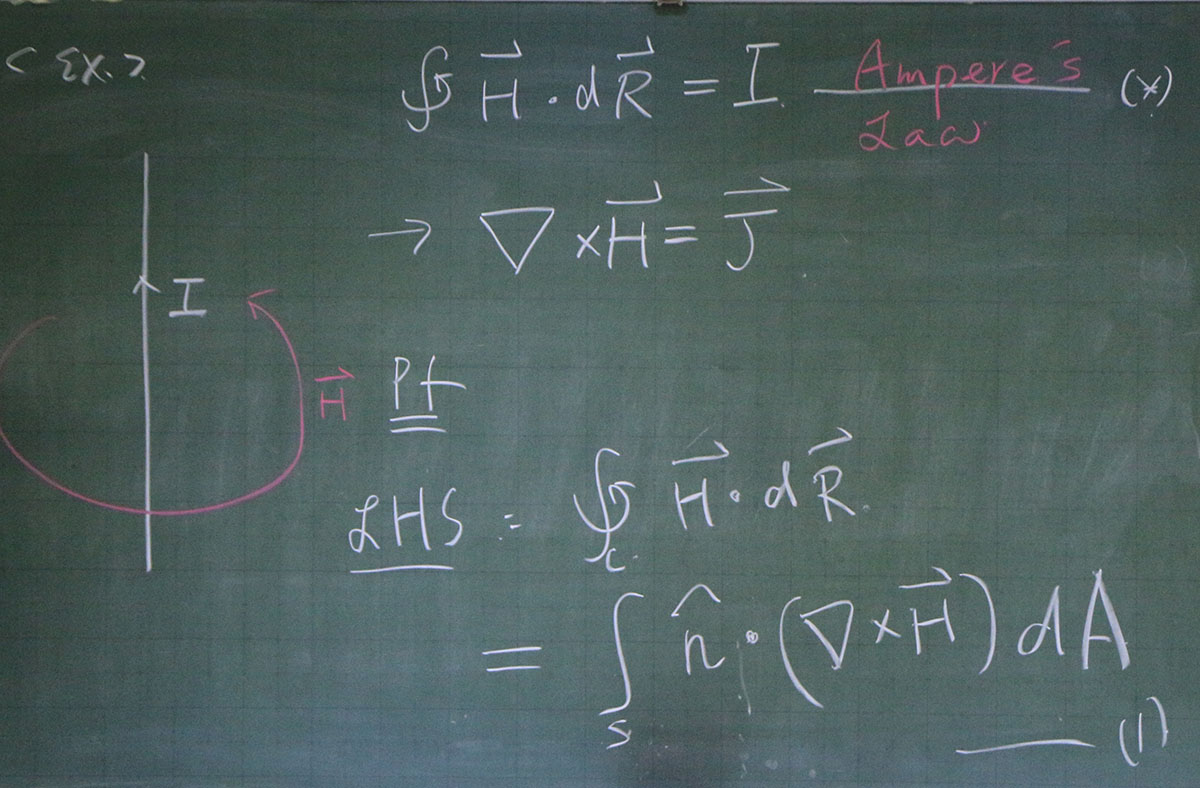 <Ex.>
∮ H⃗ · dR⃗ = I. Ampere's Law (*)
→ ∇ × H⃗ = J⃗
I
H⃗
Pf
LHS : ∮_C H⃗ · dR⃗.
= ∫_S n̂ · (∇ × H⃗) dA
—— (1)